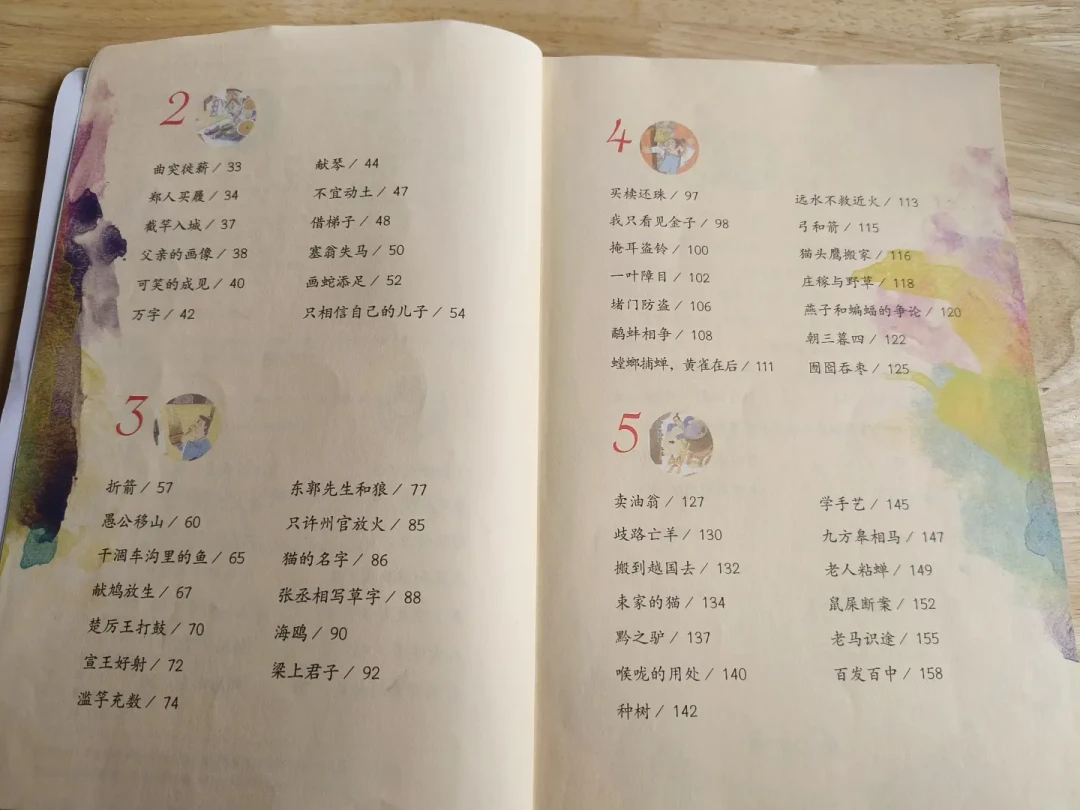 2
曲突徙薪 / 33
郑人买履 / 34
截竿入城 / 37
父亲的画像 / 38
可笑的成见 / 40
万字 / 42
献琴 / 44
不宜动土 / 47
借梯子 / 48
塞翁失马 / 50
画蛇添足 / 52
只相信自己的儿子 / 54
3
折箭 / 57
愚公移山 / 60
干涸车沟里的鱼 / 65
献鸠放生 / 67
楚厉王打鼓 / 70
宣王好射 / 72
滥竽充数 / 74
东郭先生和狼 / 77
只许州官放火 / 85
猫的名字 / 86
张丞相写草字 / 88
海鸥 / 90
梁上君子 / 92
4
买椟还珠 / 97
我只看见金子 / 98
掩耳盗铃 / 100
一叶障目 / 102
堵门防盗 / 106
鹬蚌相争 / 108
螳螂捕蝉，黄雀在后 / 111
远水不救近火 / 113
弓和箭 / 115
猫头鹰搬家 / 116
庄稼与野草 / 118
燕子和蝙蝠的争论 / 120
朝三暮四 / 122
囫囵吞枣 / 125
5
卖油翁 / 127
歧路亡羊 / 130
搬到越国去 / 132
束家的猫 / 134
黔之驴 / 137
喉咙的用处 / 140
种树 / 142
学手艺 / 145
九方皋相马 / 147
老人粘蝉 / 149
鼠屎断案 / 152
老马识途 / 155
百发百中 / 158